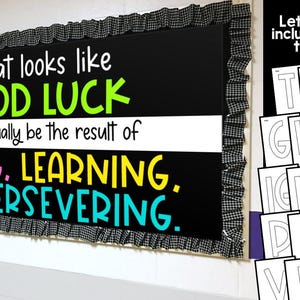 at looks like
OD LUCK
ually be the result of
LEARNING,
ERSEVERING.
Let
inclu
t
T
G
D
V